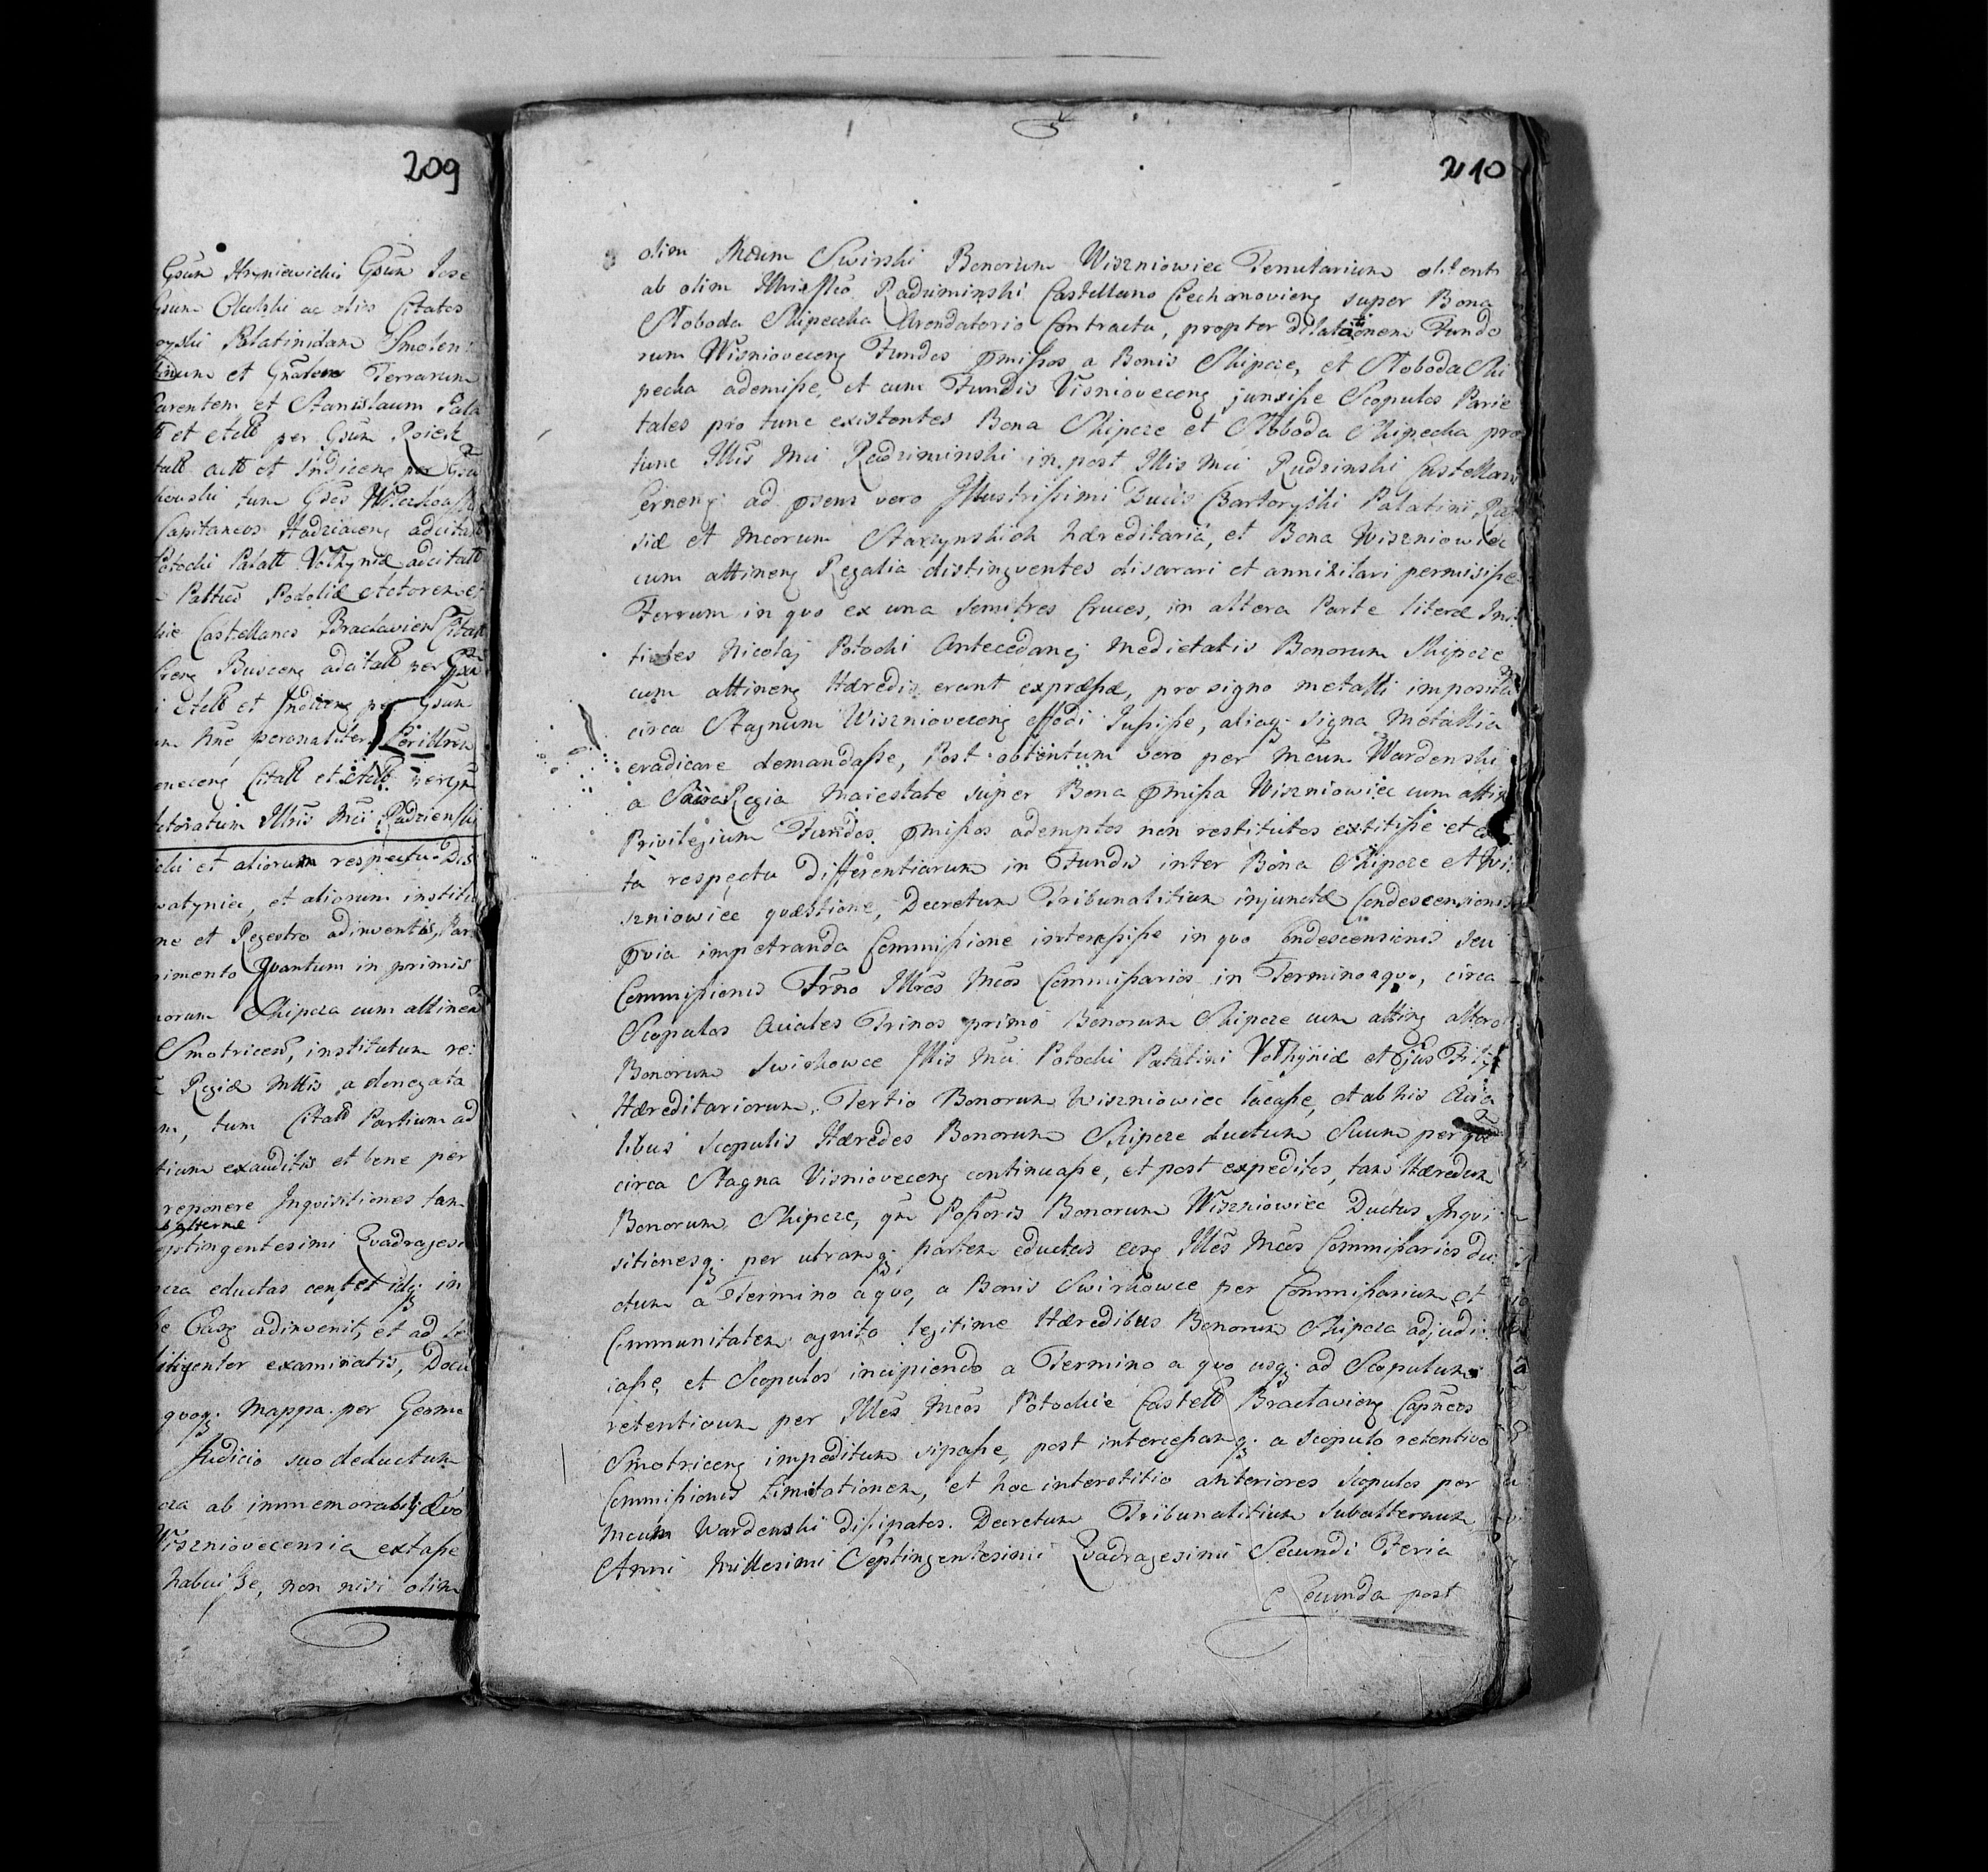 209
Gsun Hryniewicki Gsun Jose
Gsun Olelski ac alio Citatos
Palatinidam Smolen
et Gnalem Terrarum
Parentem et Stanislaum Pala
et per Gsum
actt et Indiceng per Gsu
tum Gsos
Capitaneos Hadziaceng adcitatt
Potocki Palatt Volhyniæ adcitatt
Palttus Podoliæ Actorem et
Castellanes Braclavien Citatt
Busceng adcitatt per Gsun
Cteltt et Indiceng per Gsun
hnc personaliter Perillrem
eneceng Citatt et Cteltt per Gsn
Illris Mci Radzienski
cki et aliorum respectu Dis
vatyniec, et aliorum institu
ne et Regestro adinventis, Par
imento Quantum in primis
norum Skipcza cum attinen
Smotricen, institutum re:
Regiæ Mttis a denegata
m, tum Citatt Partium ad
tium exauditis et bene per
reponere Inquisitiones tam
balterne
eptingentesimi Quadragesi
cza eductas censet idq in
e Casq adinvenit, et ad
diligenter examinatis, Docu
quoq. Mappa per Geome
Judicio suo deductum
cza ab immemorabilj ævo
Wiszniovecensia extasse
habuisse, non nisi olim
210
olim Mcum Swirski Bonorum Wiszniowiec Tenutarium obtento
ab olim Illri Mco Radziminski Castellano Ciechanovieng super Bona
Sloboda Skipecka Arendatorio Contractu, propter dilatationem Fundo
rum Wisnioveceng Fundos pmissos a Bonis Skipcze, et Sloboda Ski
pecka ademisse, et cum Fundis Visnioveceng junxisse Scopulos Parie
tales pro tunc existentes Bona Skipcze et Sloboda Skipecka pro
tunc Illris Mci Radziminski in post Illris Mci Rudzinski Castellani
Cerneng ad psens vero Illustrissimi Ducis Czartoryski Palatini Rus
siæ et Mcorum Starzynskich hæreditaria, et Bona Wiszniowiec
cum attineng Regalia distingventes disarari et annihilari permisisse
Ferrum in quo ex una semitres Cruces, in altera Parte literæ Ini
tiales Nicolaj Potocki Antecedanej medietatis Bonorum Skipcze
cum attineng Hæredis erant expressæ, pro signo metalli impositum
circa Stagnum Wisznioveceng effodi Jussisse, aliaq. signa Metallia
eradicare demandasse, Post obtentum vero per Mcum Wardenski
a Sacra Regia Maiestate super Bona pmissa Wiszniowiec cum attin
Privilegium Fundos pmissos ademptos non restitutos extitisse et
ta respectu differentiarum in Fundis inter Bona Skipcze et Wi:
szniowiec quæstione, Decretum Tribunalitium injunctæ Condescensionis
pvia impetranda Commissione intercessisse in quo Condescensionis seu
Commissionis Trno Illres Mcos Commissarios in Termino a quo, circa
Scopulos Aciales Trinos primo Bonorum Skipcze cum atting altero
Bonorum Swirkowce Illris Mci Potocki Palatini Volhyniæ et Ejus Filij
Hæreditariorum, Tertio Bonorum Wiszniowiec locasse, et ab his Acia
libus Scopulis Hæredes Bonorum Skipcze ductum Suum
circa Stagna Visnioveceng continuasse, et post expeditos, tam Hæredum
Bonorum Skipcze, qm Possoris Bonorum Wiszniowiec Ductus Inqui
sitionesq. per utramq. partem eductas eosq Illres Mcos Commissarios du
ctum a Termino a quo, a Bonis Swirkowce per Commissarium et
Communitatem agnito legitime Hæredibus Bonorum Skipcza adjudi:
casse, et Scopulos incipiendo a Termino a quo usq. ad Scopulum
retentivum per Illres Mcos Potockie Castell Braclavieng Capneos
Smotriceng impeditum sipasse, post intercessamq. a scopulo retentivo
Commissionis Limitationem, et hoc interstitio anteriores Scopulos per
Mcum Wardenski dissipatos. Decretum Tribunalitium Subalternum
Anni Millesimi Septingentesimi Quadragesimi Secundi Feria
Secunda post